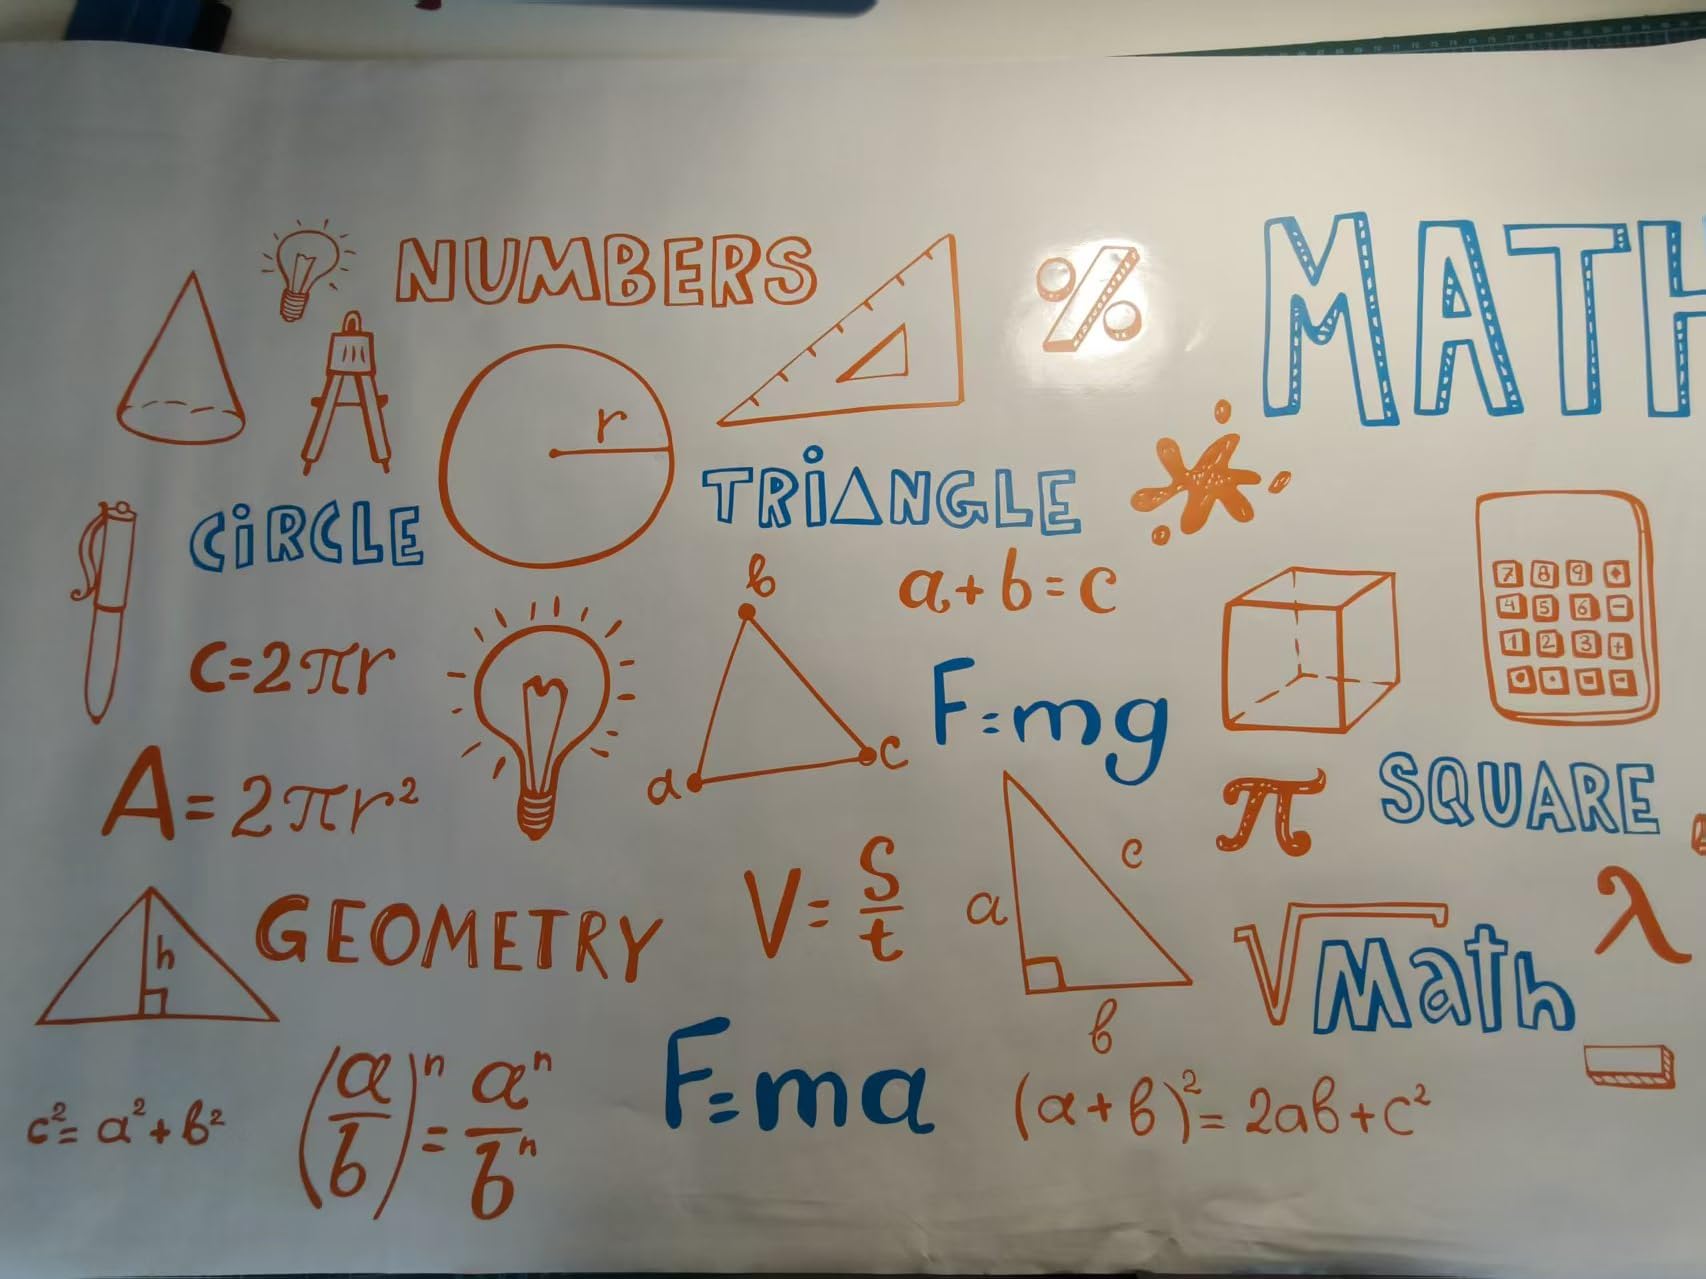 NUMBERS
MATH
r
CiRCLE
TRiANGLE
b
a+b=c
7 8 9
4 5 6 -
1 2 3 +
C=2πr
F=mg
a
c
A=2πr²
π
SQUARE
h
GEOMETRY
V=S/t
a
c
b
√Math
λ
c²=a²+b²
(a/b)ⁿ=aⁿ/bⁿ
F=ma
(a+b)²=2ab+c²
%